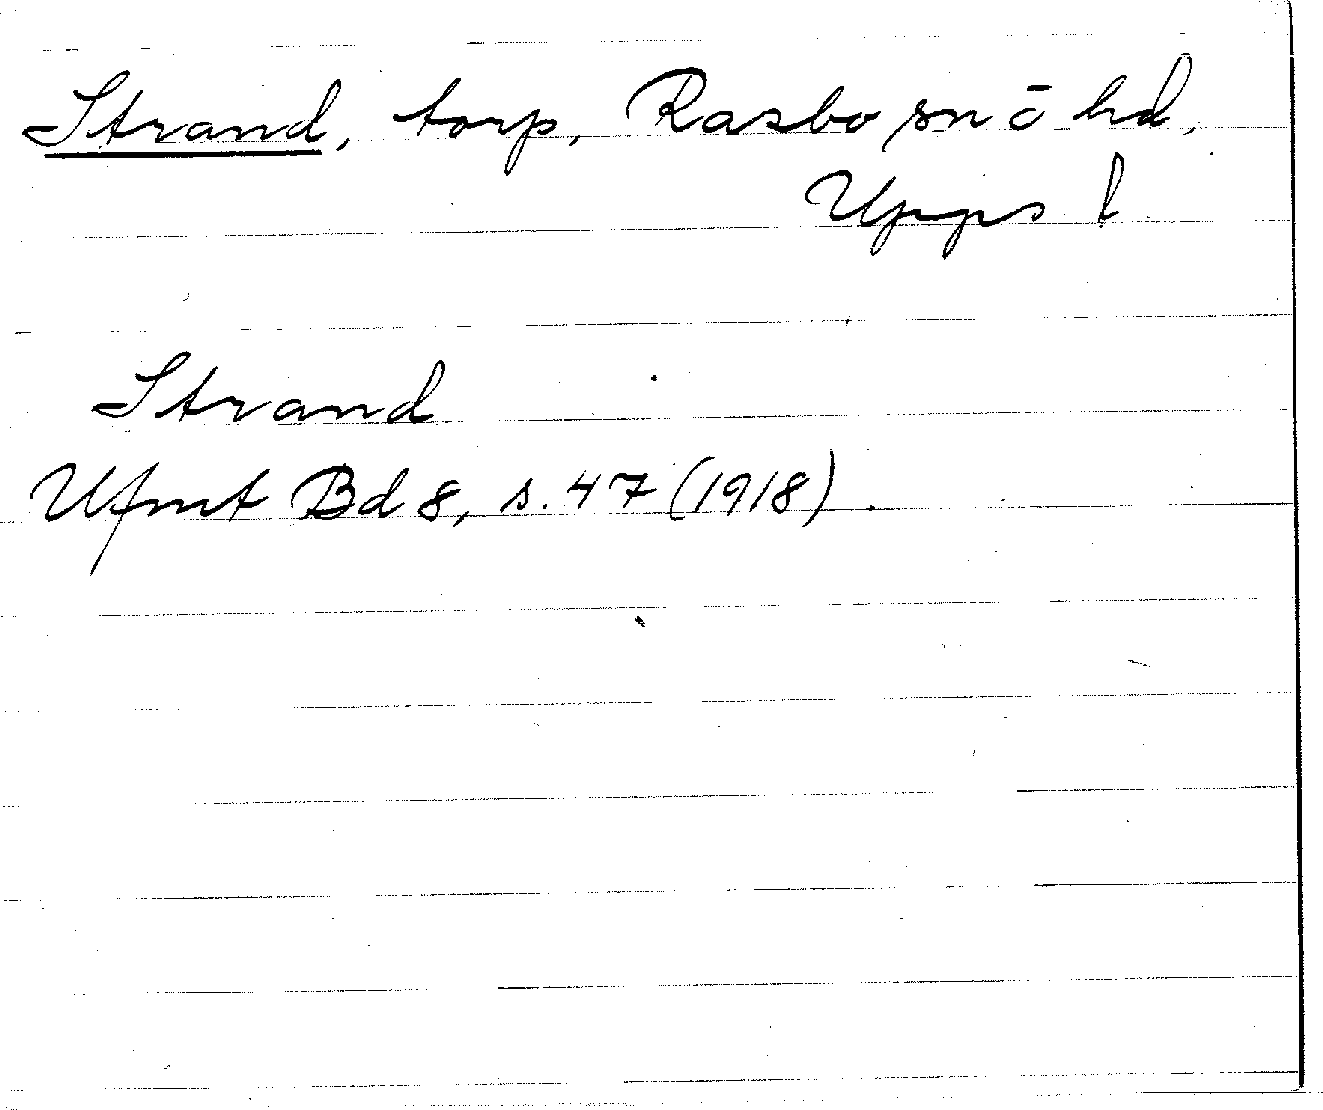 Strand, torp, Rasbo sn ō hd,
Upps l
Strand
Ufmt Bd 8, s. 47 (1918).